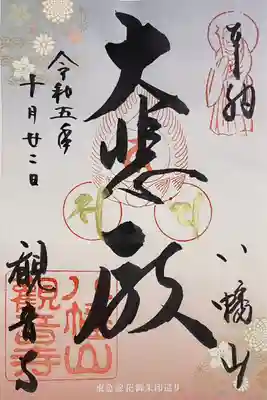 奉納
八幡山
大悲殿
令和五年
十月廿二日
観音寺
八幡山
観音寺
東急線花御朱印巡り